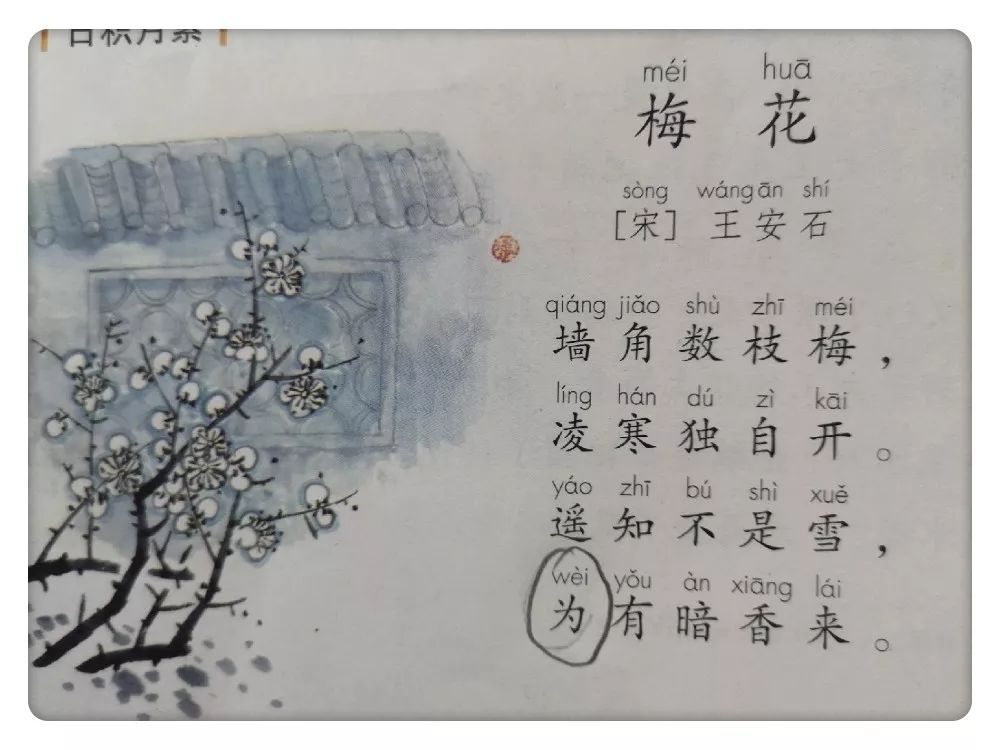 日积月累
méi huā
梅 花
sòng wáng ān shí
[宋] 王安石
qiáng jiǎo shù zhī méi
墙角数枝梅，
líng hán dú zì kāi
凌寒独自开。
yáo zhī bú shì xuě
遥知不是雪，
wèi yǒu àn xiāng lái
为有暗香来。